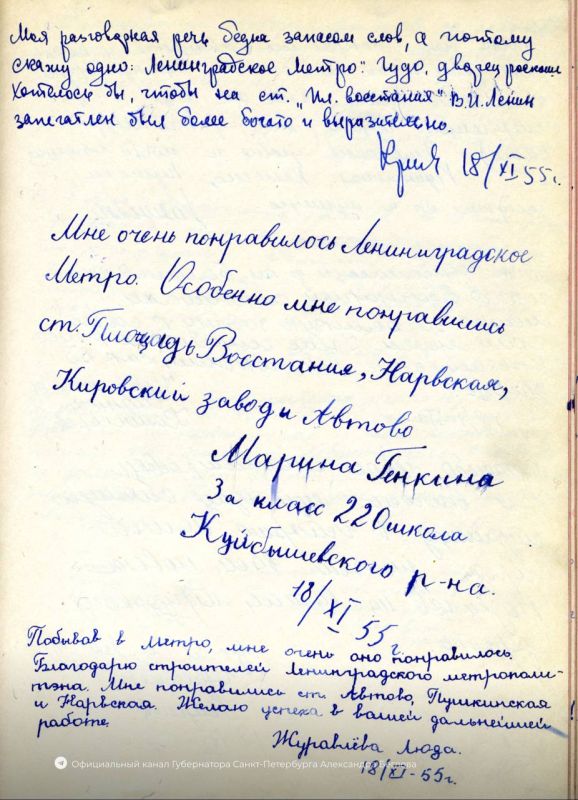 Моя разговорная речь бедна запасом слов, а поэтому
скажу одно: Ленинградское Метро": Чудо, дворец, роскошь
Хотелось бы, чтобы на ст. „Пл. восстания" В.И. Ленин
запечатлен был более богато и выразительно.
18/XI 55 г.
Мне очень понравилось Ленинградское
Метро. Особенно мне понравились
ст. Площадь Восстания, Нарвская,
Кировский завод и Автово
Марина Генкина
3а класс 220 школа
Куйбышевского р-на.
18/XI 55 г.
Побывав в метро, мне очень оно понравилось.
Благодарю строителей Ленинградского метрополи-
тэна. Мне понравились ст. Автово, Пушкинская
и Нарвская. Желаю успеха в вашей дальнейшей
работе.
Журавлёва Люда.
Официальный канал Губернатора Санкт-Петербурга Александра Беглова
18/XI-55 г.